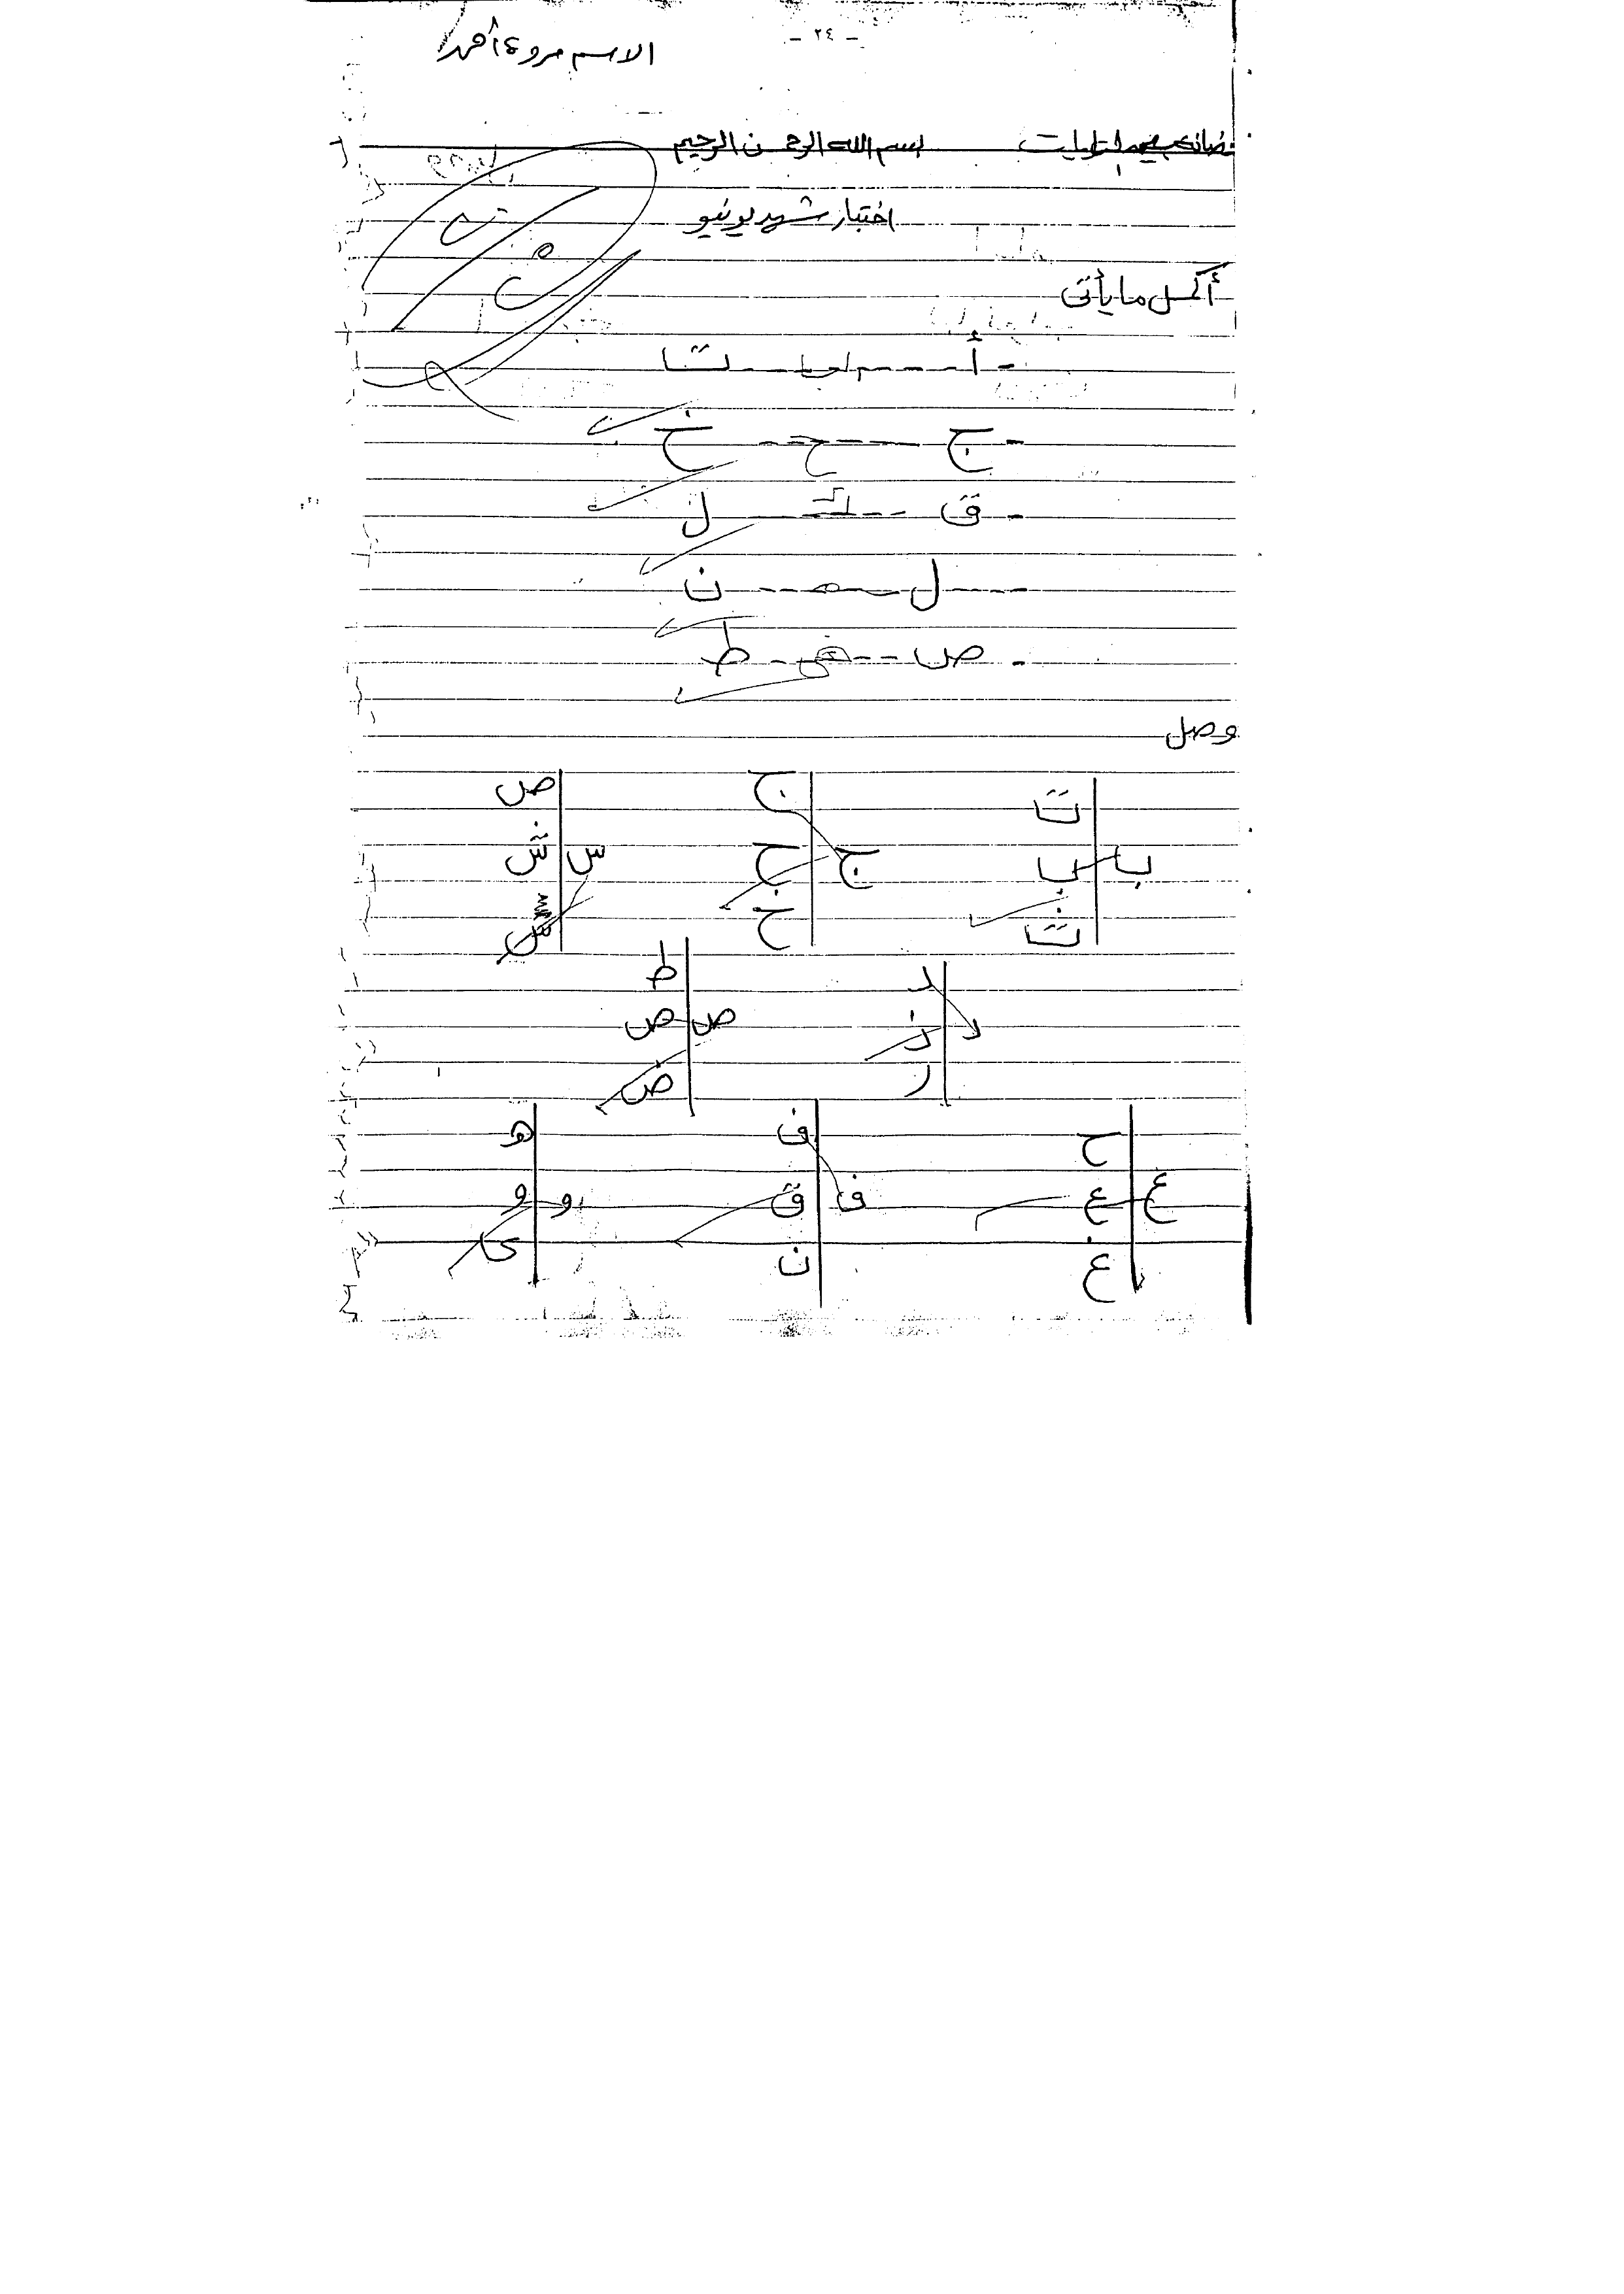 - ٢٤ -
الاسم مروة أحمد
اسم الله الرحمن الرحيم
اختبار شهر يونيو
أكمل ما يأتى
- أ --- ب --- ت
- ج --- ح --- خ
- ق --- ك --- ل
--- ل --- م --- ن
- ص --- ض --- ط
وصل
ت ج ص
ب ب ج ح س ش
ث خ س
د ط
د ذ ص ص
ر ض
ح ف ه
ع ع ف ق و و
غ ن ى